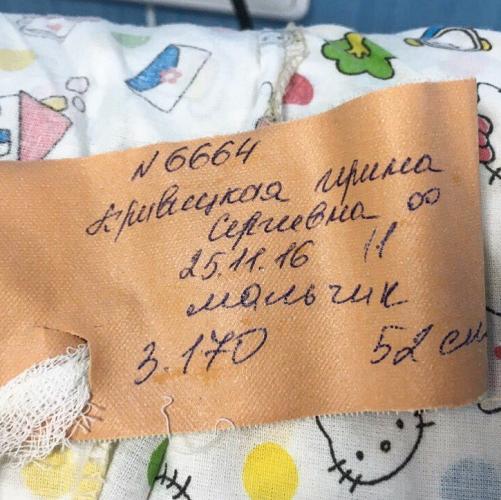 N 6664
Кривицкая Ирина
Сергиевна
25.11.16
мальчик
3.170 52 см